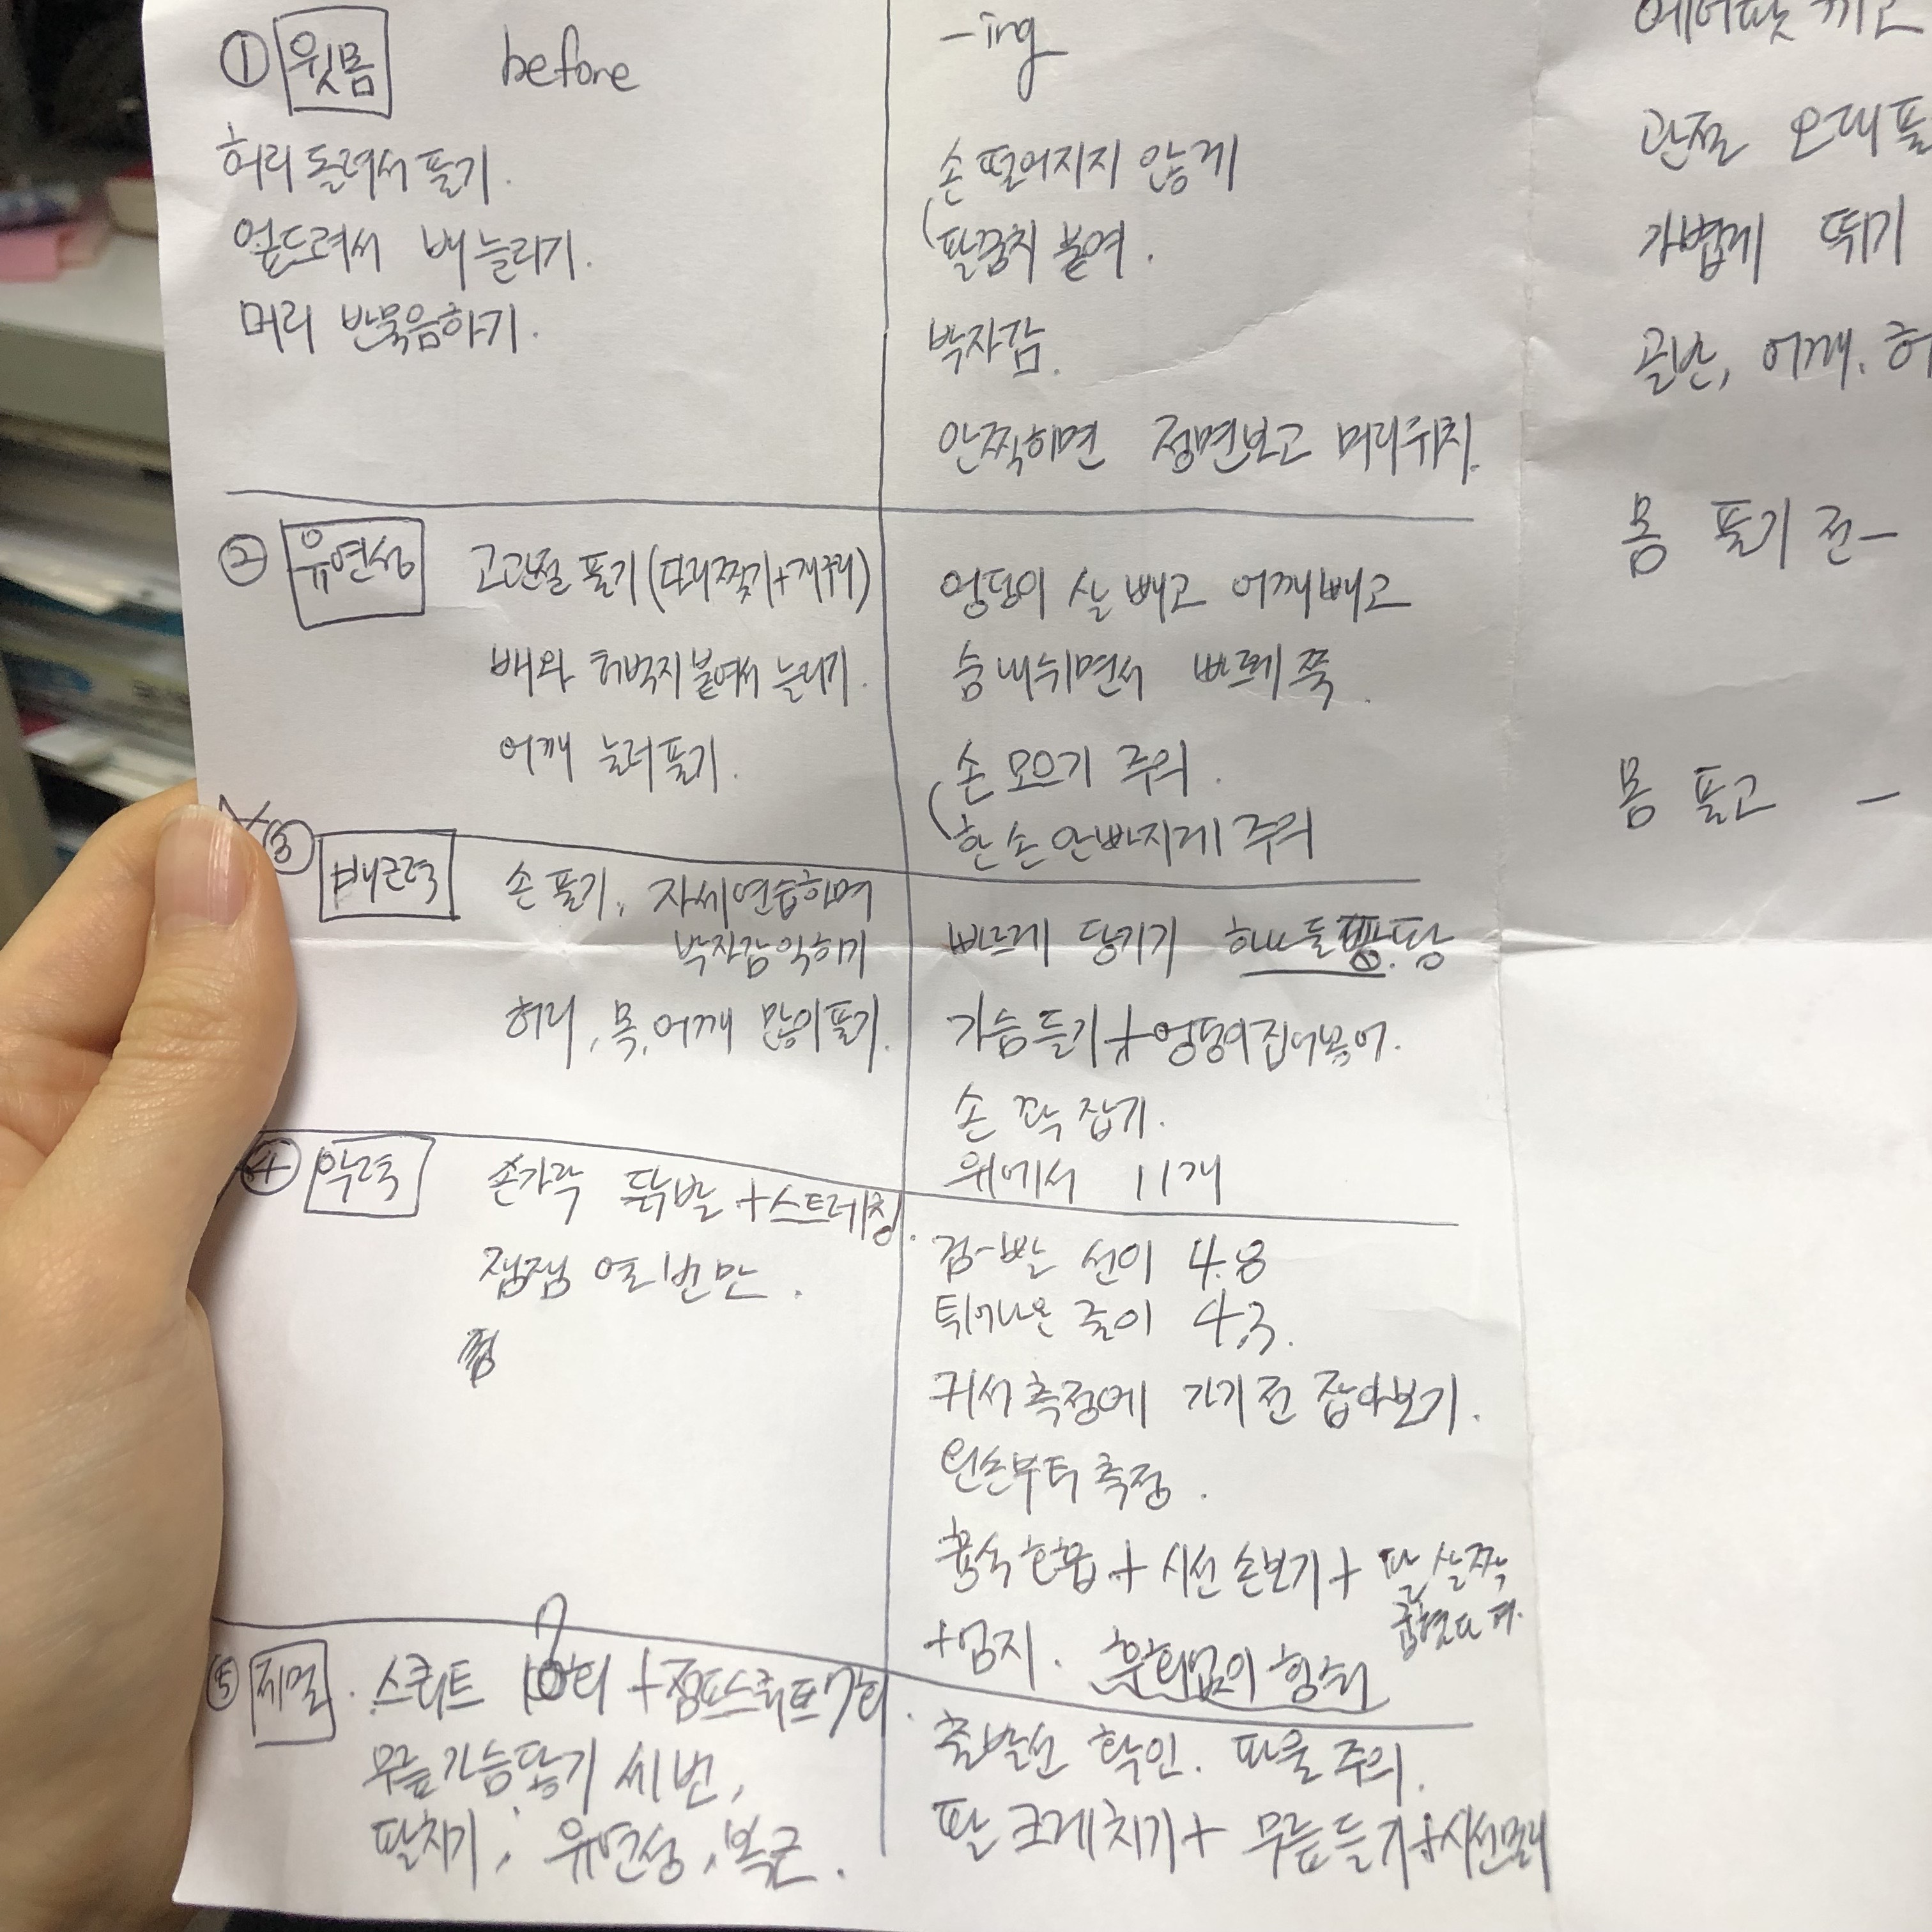 ① 윗몸 before
허리 돌려서 풀기.
엎드려서 배 늘리기.
머리 반묶음하기.
-ing
손 떨어지지 않게
팔꿈치 붙여.
박자감.
안찍히면 정면보고 머리위치.
② 유연성 고관절 풀기 (다리찢기+개구리)
배와 허벅지 붙여서 늘리기.
어깨 눌러 풀기.
엉덩이 살 빼고 어깨 빼고
숨 내쉬면서 빠르게 쭉.
손 모으기 주의.
한 손 안빠지게 주의
③ 배근력 손 풀기, 자세연습하며
박자감 익히기
허리, 목, 어깨 많이 풀기.
빠르게 당기기 하나 둘 땅
가슴 들기 + 엉덩이 집어넣어.
손 꽉 잡기.
위에서 11개
④ 악력 손가락 푹발 + 스트레칭.
잼잼 열 번만.
검-빨 선이 4.8
튀어나온 줄이 4.3.
귀서 측정에 가기 전 잡아보기.
왼손부터 측정.
호흡 + 시선 손보기 + 팔 살짝
+ 엄지. 후회없이
⑤ 제멀. 스쿼트 회 + 점프스쿼트 7회.
무릎 가슴닿기 세 번,
팔치기, 유연성, 복근.
출발선 확인. 파울 주의.
팔 크게 치기 + 무릎 들기 + 시선 멀리
관절
가볍게 뛰기
골반, 어깨,
몸 풀기 전 -
몸 풀고 -